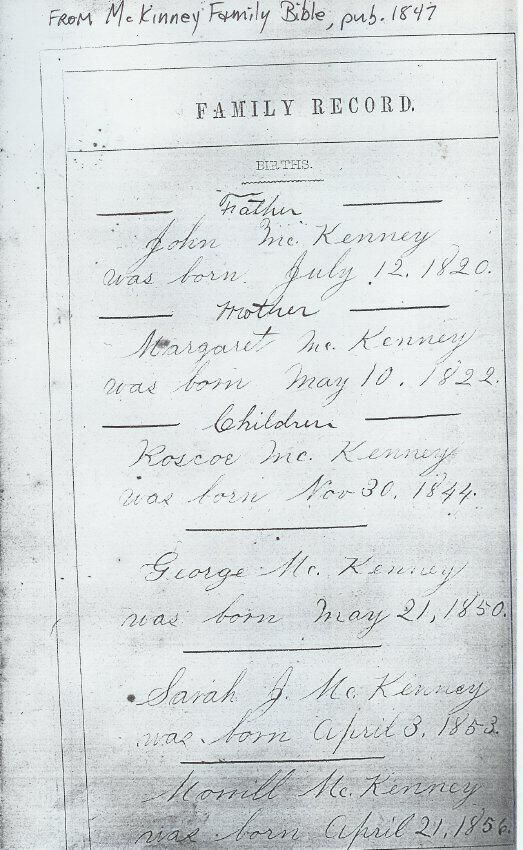 FROM McKinney Family Bible, pub. 1847
FAMILY RECORD.
BIRTHS.
Father
John Mc. Kenney
was born July 12, 1820.
Mother
Margaret Mc. Kenney
was born May 10, 1822.
Children
Roscoe Mc. Kenney
was born Nov 30, 1844.
George Mc. Kenney
was born May 21, 1850.
Sarah J. Mc. Kenney
was born April 3, 1853.
Morrill Mc. Kenney
was born April 21, 1856.